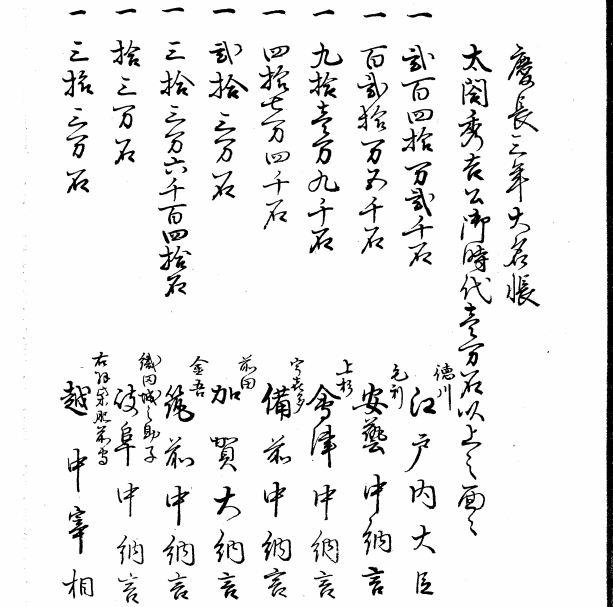 慶長三年大名帳
太閤秀吉公御時代壱万石以上之面々
一 弐百四拾万弐千石 徳川 江戸内大臣
一 百弐拾万五千石 毛利 安藝中納言
一 九拾壱万九千石 上杉 會津中納言
一 四拾七万四千石 宇喜多 備前中納言
一 弐拾三万石 前田 加賀大納言
一 三拾三万六千百四拾石 金吾 筑前中納言
一 拾三万石 織田城之助子 岐阜中納言
一 三拾三万石 肥前守 越中宰相